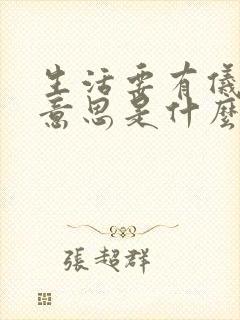 生活要有儀
意思是什麼
張超群